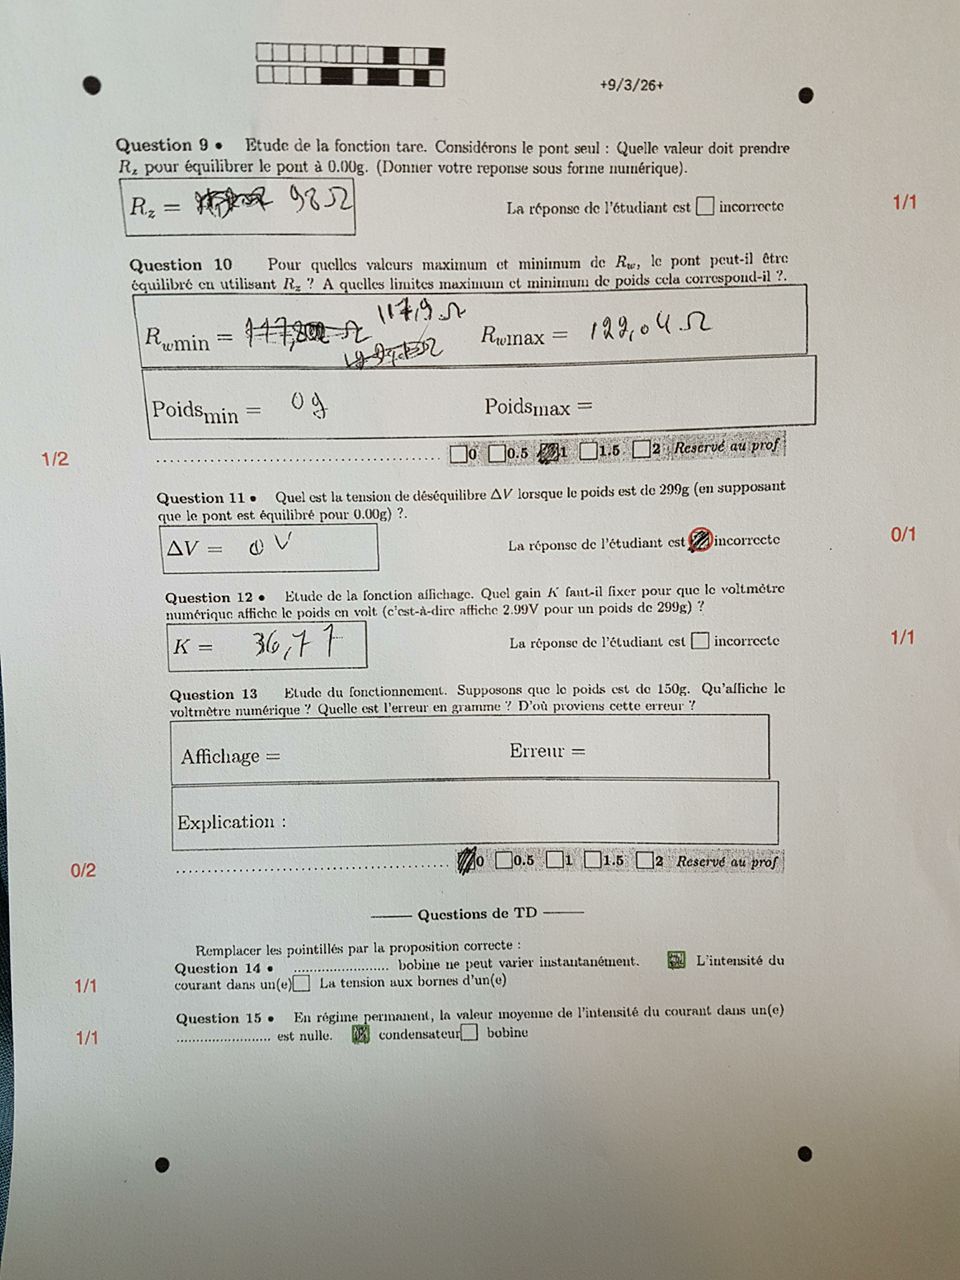 +9/3/26+
Question 9 • Etude de la fonction tare. Considérons le pont seul : Quelle valeur doit prendre
Rz pour équilibrer le pont à 0.00g. (Donner votre reponse sous forme numérique).
Rz = 98 Ω
La réponse de l'étudiant est incorrecte
1/1
Question 10 Pour quelles valeurs maximum et minimum de Rw, le pont peut-il être
équilibré en utilisant Rz ? A quelles limites maximum et minimum de poids cela correspond-il ?.
Rwmin = 117,9 Ω Rwmax = 122,04 Ω
Poidsmin = 0 g Poidsmax =
1/2
0 0.5 1 1.5 2 Reservé au prof
Question 11 • Quel est la tension de déséquilibre ΔV lorsque le poids est de 299g (en supposant
que le pont est équilibré pour 0.00g) ?.
ΔV = 0 V
La réponse de l'étudiant est incorrecte
0/1
Question 12 • Etude de la fonction affichage. Quel gain K faut-il fixer pour que le voltmètre
numérique affiche le poids en volt (c'est-à-dire affiche 2.99V pour un poids de 299g) ?
K = 36,77
La réponse de l'étudiant est incorrecte
1/1
Question 13 Etude du fonctionnement. Supposons que le poids est de 150g. Qu'affiche le
voltmètre numérique ? Quelle est l'erreur en gramme ? D'où proviens cette erreur ?
Affichage = Erreur =
Explication :
0/2
0 0.5 1 1.5 2 Reservé au prof
Questions de TD
Remplacer les pointillés par la proposition correcte :
Question 14 • ........................ bobine ne peut varier instantanément. L'intensité du
courant dans un(e) La tension aux bornes d'un(e)
1/1
Question 15 • En régime permanent, la valeur moyenne de l'intensité du courant dans un(e)
........................ est nulle. condensateur bobine
1/1